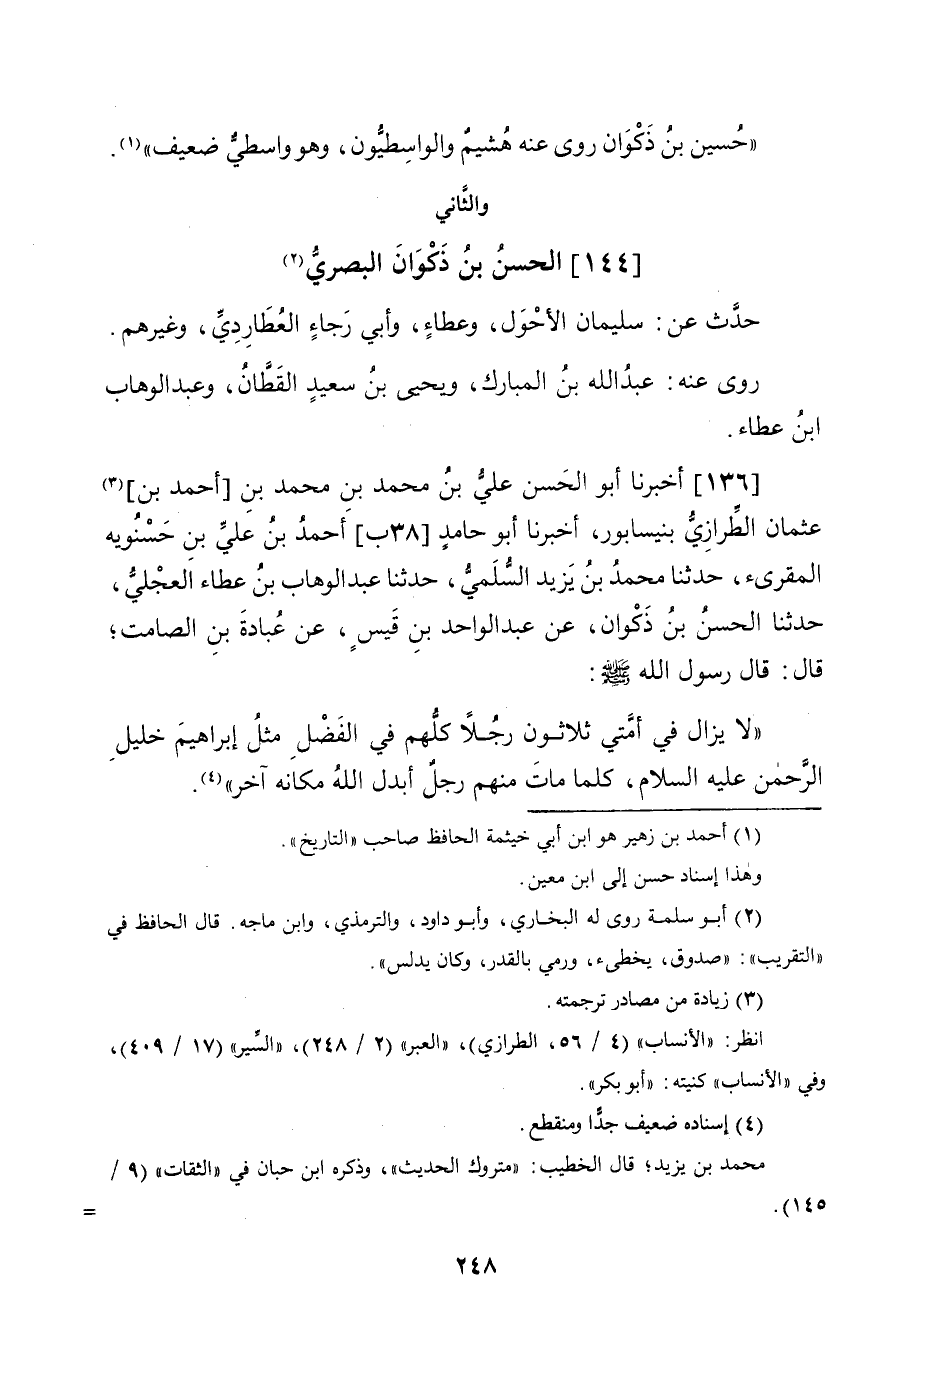 «حُسين بنُ ذَكْوَان روى عنه هُشيمٌ والواسِطيُّون، وهو واسطيٌّ ضعيف»(١).
والثَّاني
[١٤٤] الحسنُ بنُ ذَكْوَانَ البصريُّ(٢)
حدَّث عن: سليمان الأحْوَل، وعطاءٍ، وأبي رَجاءٍ العُطَارِديِّ، وغيرهم.
روى عنه: عبدُالله بنُ المبارك، ويحيى بنُ سعيدٍ القَطَّانُ، وعبدالوهاب
ابنُ عطاء.
[١٣٦] أخبرنا أبو الحَسن عليُّ بنُ محمد بنِ محمد بنِ [أحمد بن](٣)
عثمان الطِّرازِيُّ بنيسابور، أخبرنا أبو حامدٍ [٣٨ب] أحمدُ بنُ عليِّ بنِ حَسْنُويه
المقرىء، حدثنا محمدُ بنُ يَزيد السُّلَميُّ، حدثنا عبدالوهاب بنُ عطاء العجْليُّ،
حدثنا الحسنُ بنُ ذَكْوان، عن عبدالواحد بنِ قَيسٍ، عن عُبادةَ بنِ الصامت؛
قال: قال رسول الله ﷺ:
«لا يزال في أمَّتي ثلاثون رجُلاً كلُّهم في الفَضْلِ مثلُ إبراهيمَ خليلِ
الرَّحمٰن عليه السلام، كلما ماتَ منهم رجلٌ أبدل اللهُ مكانه آخر»(٤).
(١) أحمد بن زهير هو ابن أبي خيثمة الحافظ صاحب «التاريخ».
وهٰذا إسناد حسن إلى ابن معين.
(٢) أبو سلمة روى له البخاري، وأبو داود، والترمذي، وابن ماجه. قال الحافظ في
«التقريب»: «صدوق، يخطىء، ورمي بالقدر، وكان يدلس».
(٣) زيادة من مصادر ترجمته.
انظر: «الأنساب» (٤ / ٥٦، الطرازي)، «العبر» (٢ / ٢٤٨)، «السِّير» (١٧ / ٤٠٩)،
وفي «الأنساب» كنيته: «أبو بكر».
(٤) إسناده ضعيف جدًّا ومنقطع.
محمد بن يزيد؛ قال الخطيب: «متروك الحديث»، وذكره ابن حبان في «الثقات» (٩ /
١٤٥).
=
٢٤٨